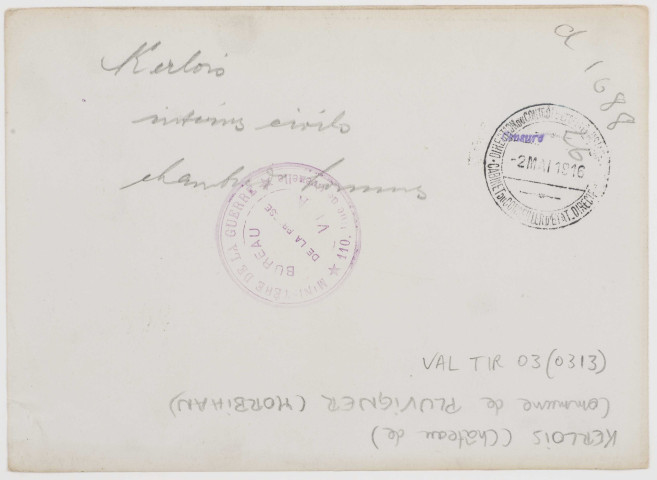 Kerlois
internés civils
chambre de femmes
cl 1688
MINISTÈRE DE LA GUERRE
BUREAU
DE LA PRESSE
110,
2 MAI 1916
VAL TIR 03(0313)
KERLOIS (Château de)
Commune de PLUVIGNER (MORBIHAN)